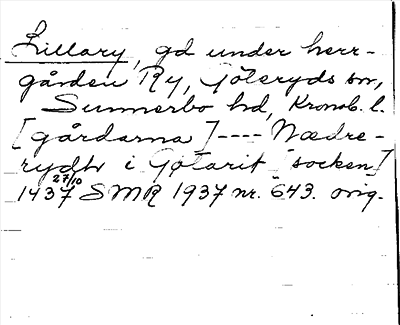 Lillary, gd under herr-
gården Ry, Göteryds sn,
Sunnerbo hd, Kronob. l.
[gårdarna]---- Nædre-
rydh i Götarit [socken]
1437 27/10 SMR 1937 nr. 643. orig.